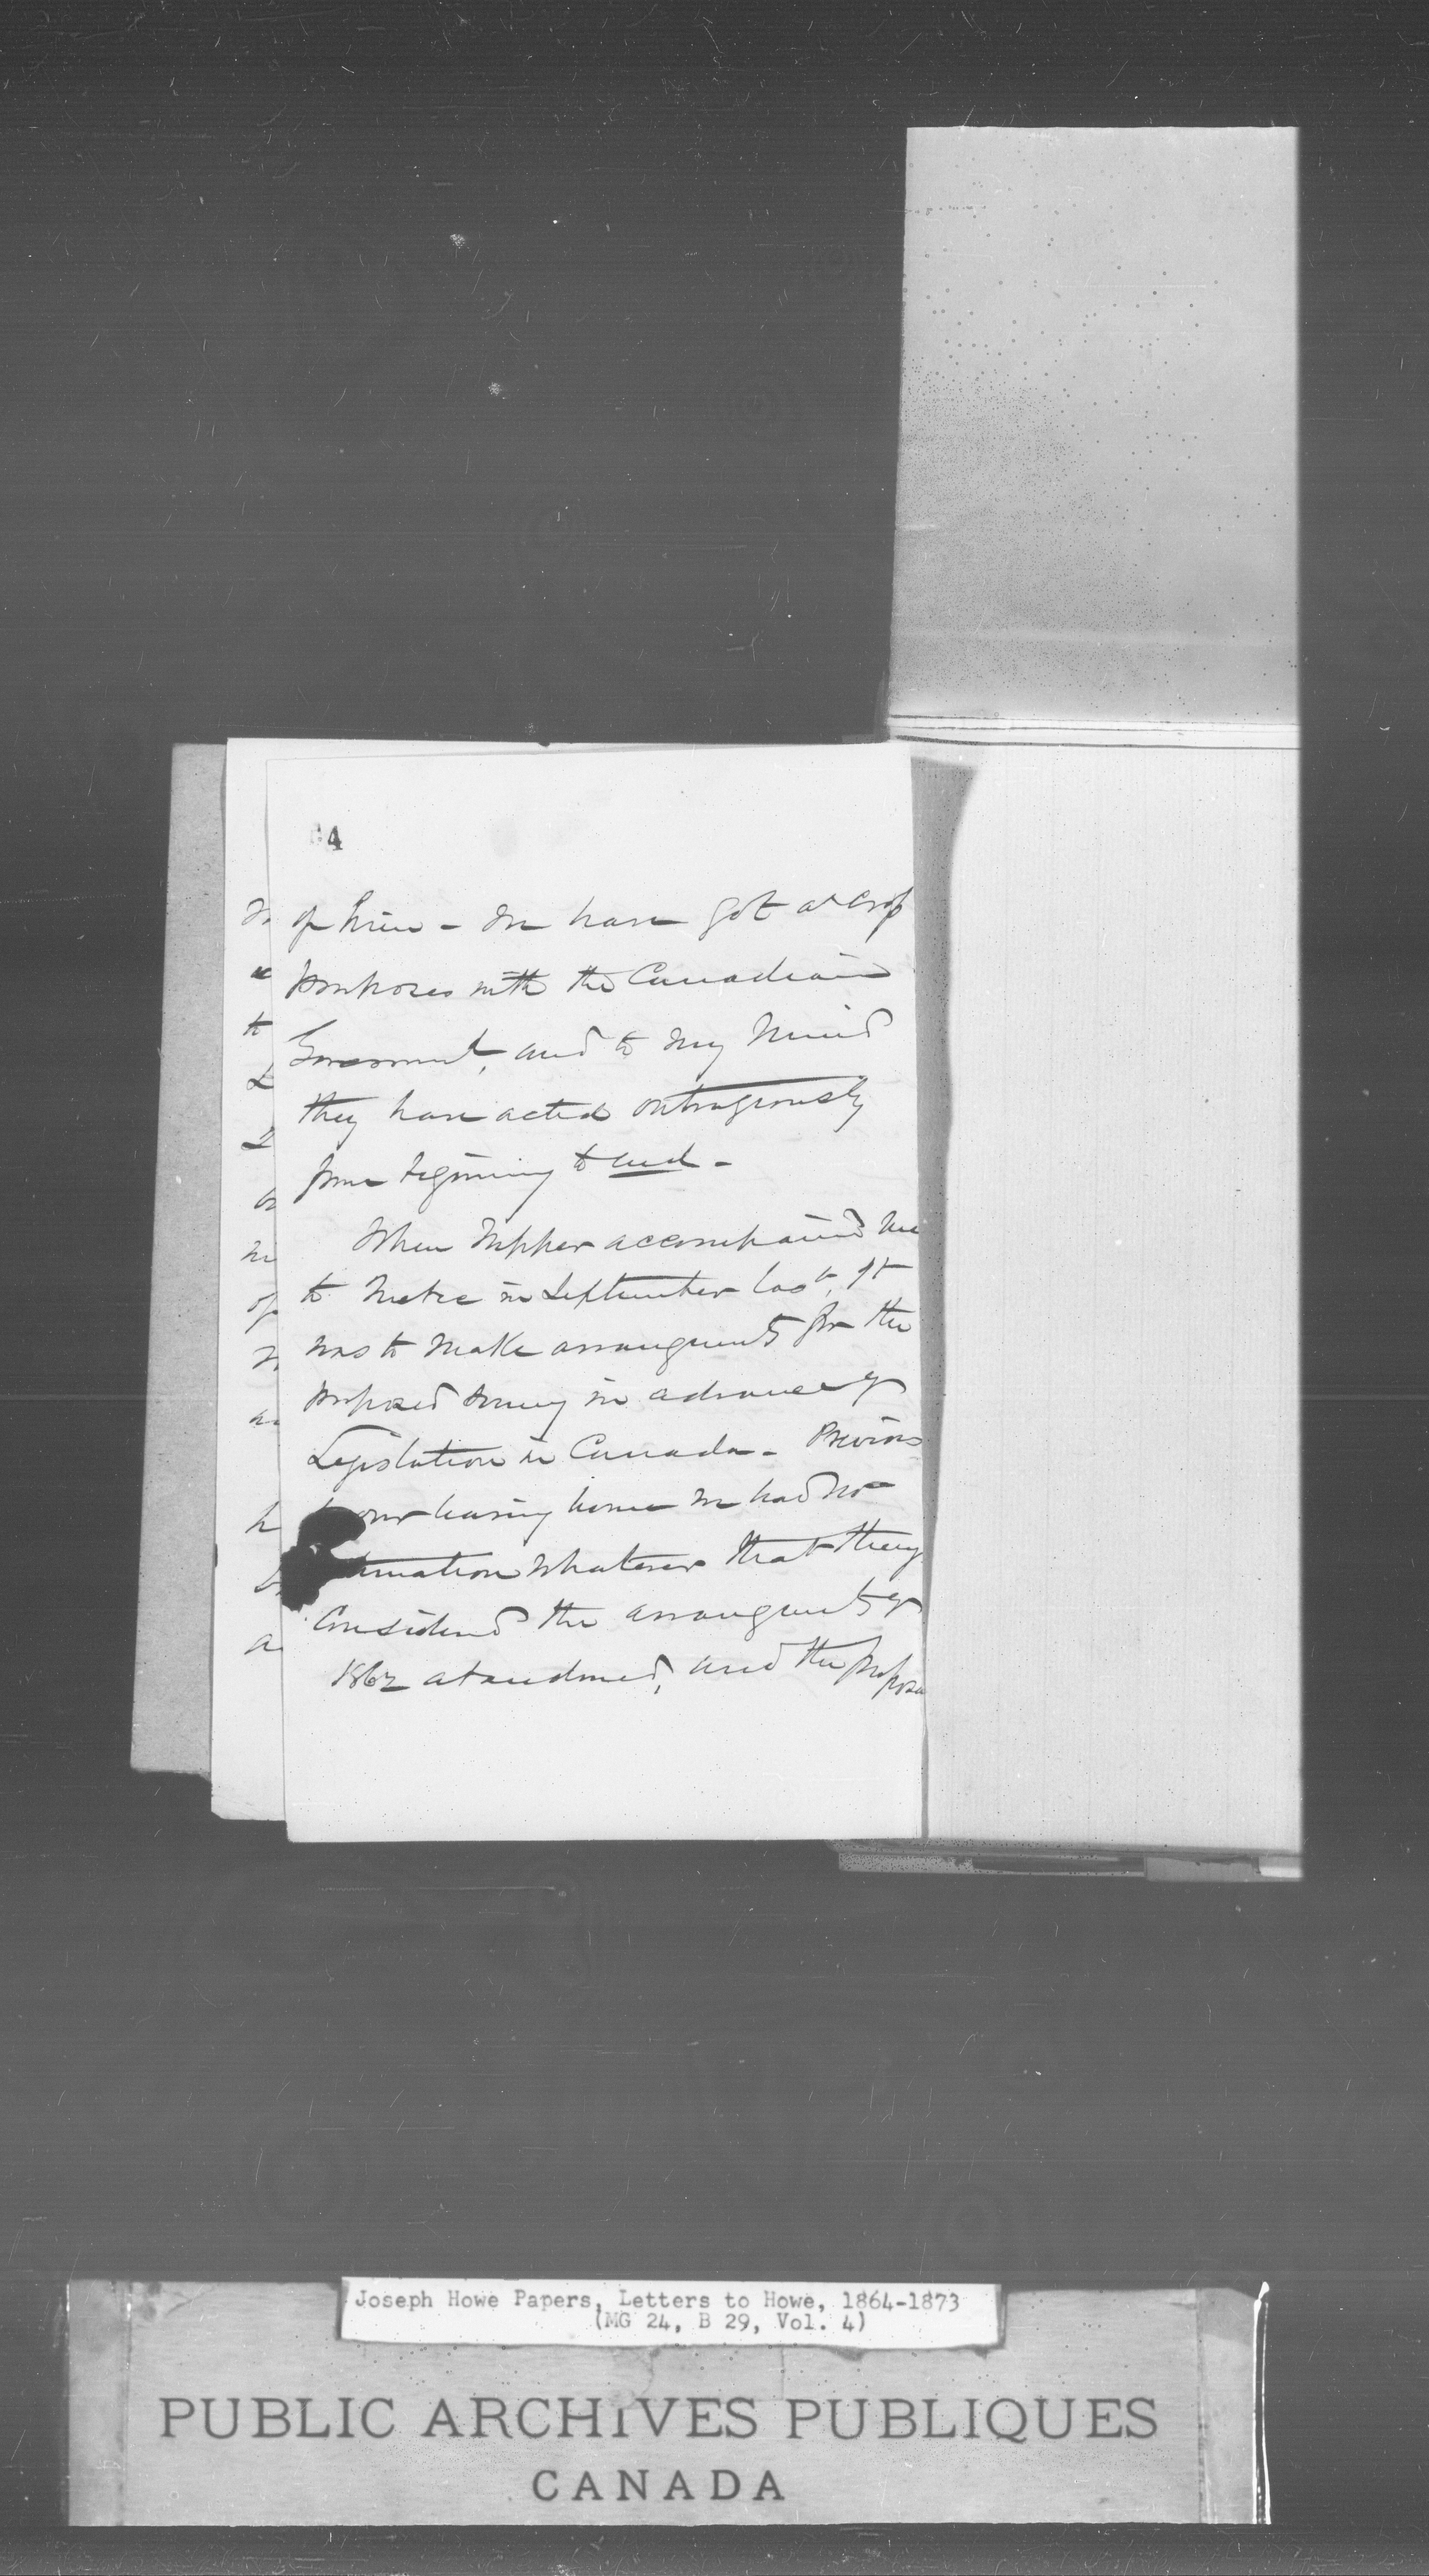 64
of him - We have got at Cross
purposes with the Canadian
Government, and to my mind
they have acted outrageously
from begining to end -
When Tupper accompanied me
to Quebec in September last, it
was to make arrangements for the
proposed Survey in advance of
Legislation in Canada - Previous
to our leaving home we had no
intimation whatever that they
Considered the arrangements of
1862 abandoned, and the proposa
Joseph Howe Papers, Letters to Howe, 1864-1873
(MG 24, B 29, Vol. 4)
PUBLIC ARCHIVES PUBLIQUES
CANADA